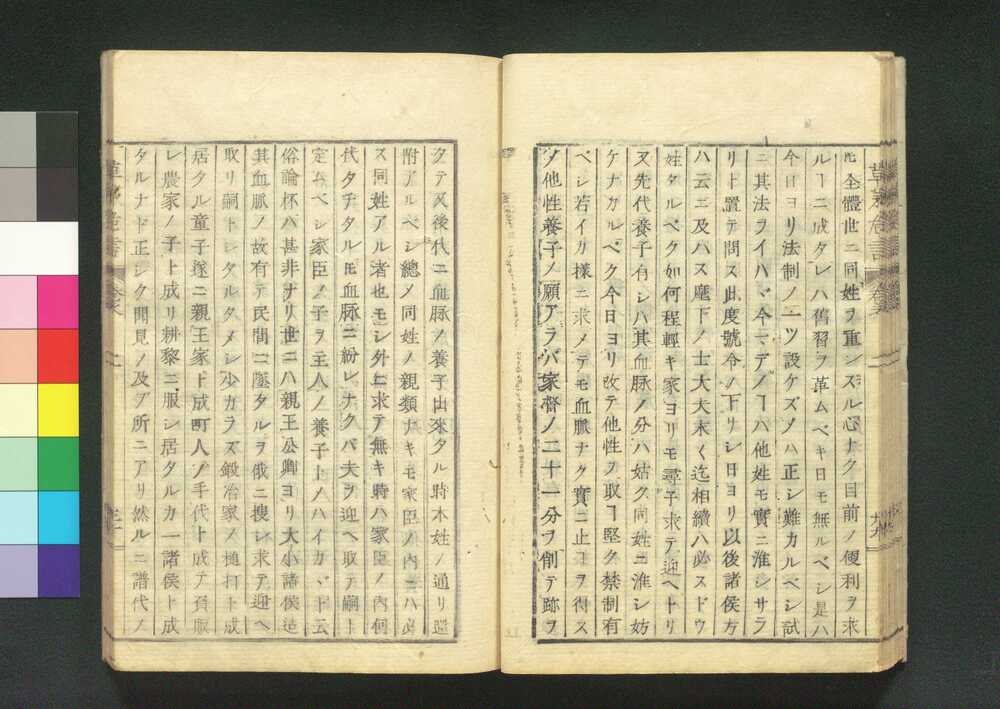 全體世ニ同姓ヲ重ンズル心ナク目前ノ便利ヲ求
ルヿニ成タレハ舊習ヲ革ムベキ日モ無ルベシ是ハ
今日ヨリ法制ノ一ツ設ケズメハ正シ難カルベシ試
ニ其法ヲイハヾ今マデノヿハ他姓モ實ニ准シサラ
リト置テ問ス此度號令ノ下リシ日ヨリ以後諸侯方
ハ云ニ及ハス麾下ノ士大夫末々迄相續ハ必スドウ
姓タルベク如何程輕キ家ヨリモ尋子求テ迎ヘトリ
又先代養子有シハ其血脉ノ分ハ姑ク同姓ニ准シ妨
ケナカルベク今日ヨリ改テ他性ヲ取ヿ堅ク禁制有
ベシ若イカ樣ニ求メテモ血脈ナク實ニ止ヿヲ得ス
他性養子ノ願アラバ家督ノ二十一分ヲ削テ跡ヲ
タテ又後代ニ血脉ノ養子出來タル時本姓ノ通リ還
附アルベシ總メ同姓ノ親類ナキモ家臣ノ内ニハ必
ス同姓アル者也モシ外ニ求テ無キ時ハ家臣ノ内何
代タチタルモ血脉ニ紛レナクバ夫ヲ迎ヘ取テ嗣ト
定ムベシ家臣ノ子ヲ主人ノ養子トハイカヾト云
俗論抔ハ甚非ナリ世ニハ親王公卿ヨリ大小諸侯迄
其血脈ノ故有テ民間ニ墜タルヲ俄ニ搜シ求テ迎ヘ
取リ嗣トシタルタメシ少カラズ鍛冶家ノ槌打ト成
居タル童子遂ニ親王家ト成町人ノ手代ト成テ
レ農家ノ子ト成リ耕黎ニ服シ居タルカ一諸侯ト成
タルナド正シク聞見ノ及ブ所ニアリ然ルニ譜代ノ